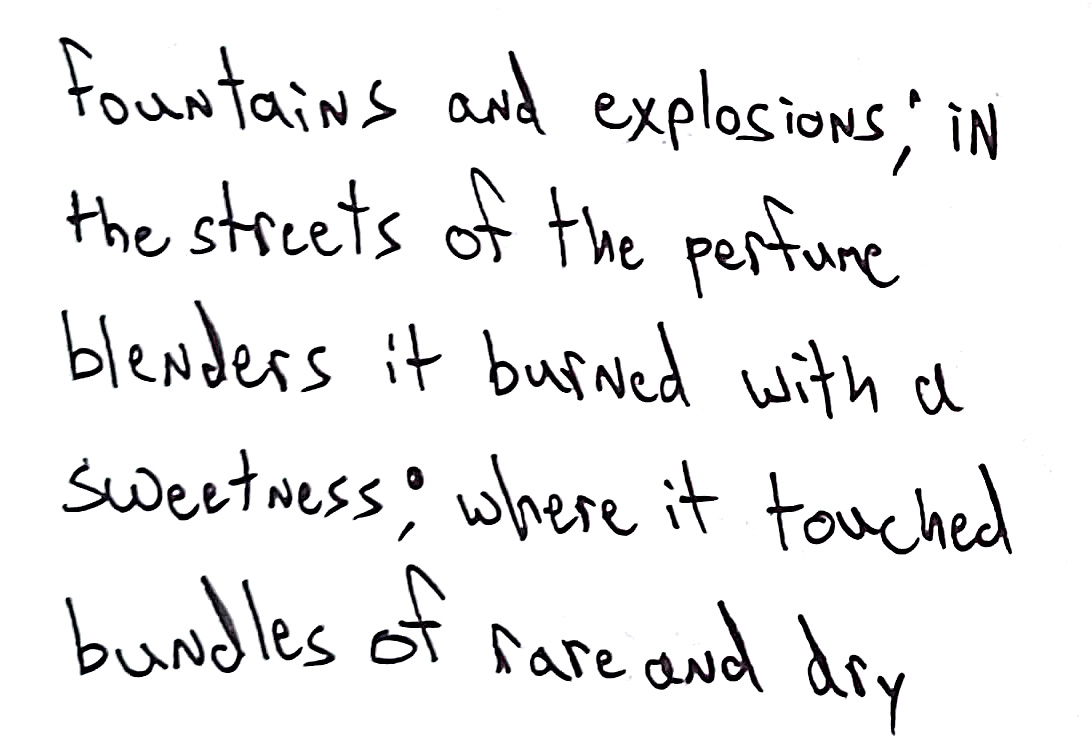 fountains and explosions; in
the streets of the perfume
blenders it burned with a
sweetness; where it touched
bundles of rare and dry